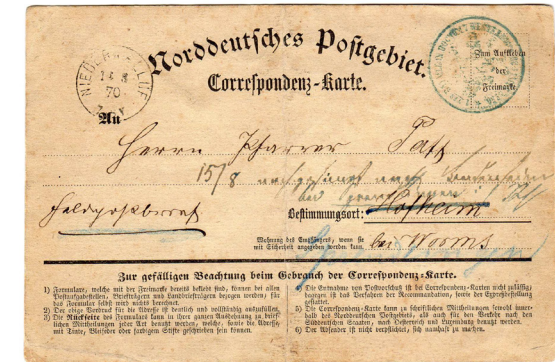 Norddeutsches Postgebiet.
Correspondenz-Karte.
NIEDERWALLUF
14 8
70
Zum Aufkleben
der
Freimarke
An
Herrn Pfarrer
15/8 nach
Feldpostbrief
Bestimmungsort: Hofheim
Wohnung des Empfängers, wenn sie
mit Sicherheit angegeben werden kann.
bei Worms
Zur gefälligen Beachtung beim Gebrauch der Correspondenz-Karte.
1) Formulare, welche mit der Freimarke bereits beklebt sind, können bei allen
Postaufgabestellen, Briefträgern und Landbriefträgern bezogen werden; für
das Formular selbst wird nichts berechnet.
2) Der obige Vordruck für die Adresse ist deutlich und vollständig auszufüllen.
3) Die Rückseite des Formulars kann in ihrer ganzen Ausdehnung zu brief-
lichen Mittheilungen jeder Art benutzt werden, welche, sowie die Adresse,
mit Tinte, Bleifeder oder farbigem Stifte geschrieben sein können.
4) Die Entnahme von Postvorschuß ist bei Correspondenz-Karten nicht zulässig
dagegen ist das Verfahren der Recommandation, sowie der Expreßbestellung
gestattet.
5) Die Correspondenz-Karte kann zu schriftlichen Mittheilungen sowohl inner-
halb des Norddeutschen Postgebiets, als auch für den Verkehr nach den
Süddeutschen Staaten, nach Oesterreich und Luxemburg benutzt werden.
6) Der Absender ist nicht verpflichtet, sich namhaft zu machen.